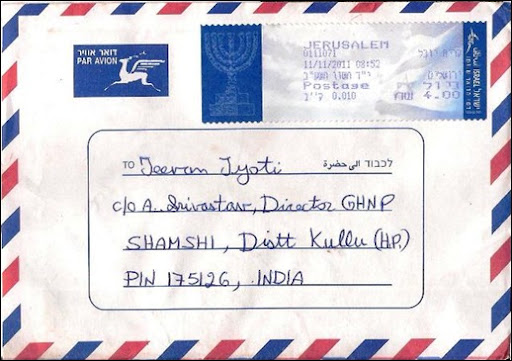 דואר אוויר
PAR AVION
JERUSALEM
0111071
11/11/2011 08:52
Postage
0.010
4.00
ISRAEL
TO Jeevan Jyoti לכבוד الى حضرة
c/o A. Srivastav, Director GHNP
SHAMSHI, Distt Kullu (H.P.)
PIN 175126, INDIA